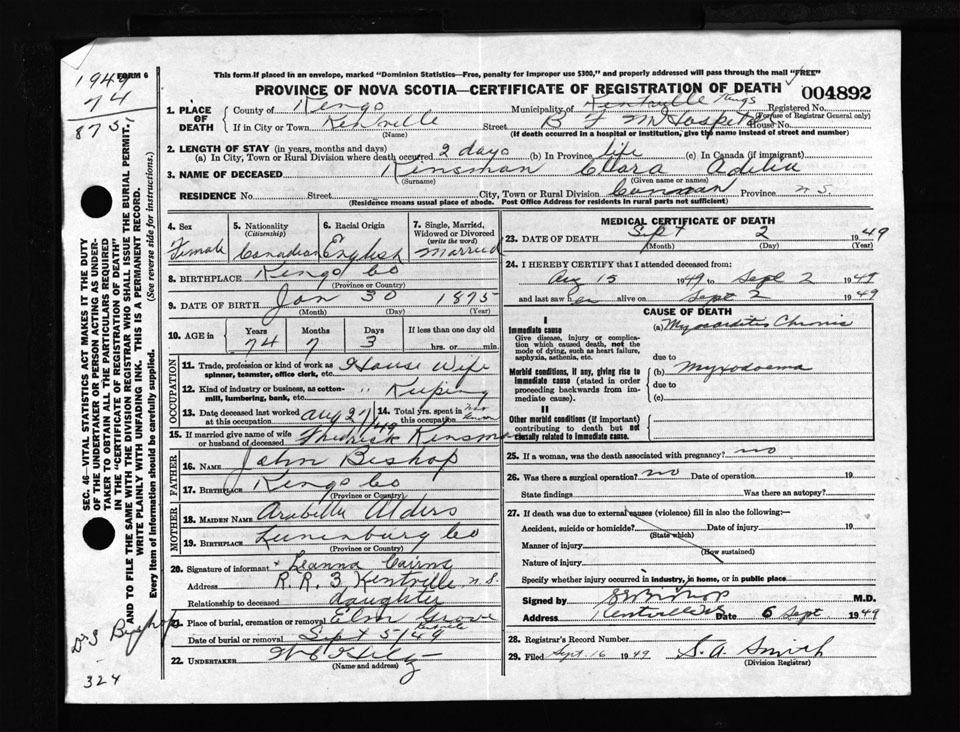 1949
74
875
FORM 6
This form if placed in an envelope, marked "Dominion Statistics—Free, penalty for improper use $300," and properly addressed will pass through the mail "FREE"
PROVINCE OF NOVA SCOTIA—CERTIFICATE OF REGISTRATION OF DEATH
004892
1. PLACE OF DEATH
County of Kings Municipality of Kentville Kings Registered No.
(For use of Registrar General only)
If in City or Town Kentville Street B F M Hospital House No.
(Name) (If death occurred in a hospital or institution, give the name instead of street and number)
2. LENGTH OF STAY (in years, months and days)
(a) In City, Town or Rural Division where death occurred 2 days (b) In Province life (c) In Canada (if immigrant)
3. NAME OF DECEASED Kinsman Clara Adelia
(Surname) (Given name or names)
RESIDENCE No. Street City, Town or Rural Division Province N S
(Residence means usual place of abode. Post Office Address for residents in rural parts not sufficient)
4. Sex
Female
5. Nationality
(Citizenship)
Canadian
6. Racial Origin
English
7. Single, Married, Widowed or Divorced
(write the word)
Married
8. BIRTHPLACE Kings Co
(Province or Country)
9. DATE OF BIRTH Jan 30 1875
(Month) (Day) (Year)
10. AGE in Years Months Days If less than one day old
74 7 3 hrs. or min.
OCCUPATION
11. Trade, profession or kind of work as spinner, teamster, office clerk, etc. House Wife
12. Kind of industry or business, as cotton-mill, lumbering, bank, etc. " Keeping
13. Date deceased last worked at this occupation Aug 27/49
14. Total yrs. spent in this occupation
15. If married give name of wife or husband of deceased Kinsman
FATHER
16. NAME John Bishop
17. BIRTHPLACE Kings Co
(Province or Country)
MOTHER
18. MAIDEN NAME Arabella Alders
19. BIRTHPLACE Lunenburg Co
(Province or Country)
20. Signature of informant x Leanna Cairns
Address R.R. 3 Kentville N.S.
Relationship to deceased daughter
21. Place of burial, cremation or removal Elm Grove
Date of burial or removal Sept 5/49
22. UNDERTAKER
(Name and address)
MEDICAL CERTIFICATE OF DEATH
23. DATE OF DEATH Sept 2 1949
(Month) (Day) (Year)
24. I HEREBY CERTIFY that I attended deceased from:
Aug 15 1949 to Sept 2 1949
and last saw her alive on Sept 2 1949
CAUSE OF DEATH
I
Immediate cause
Give disease, injury or complication which caused death, not the mode of dying, such as heart failure, asphyxia, asthenia, etc.
(a) Myocarditis Chronic
due to
Morbid conditions, if any, giving rise to immediate cause (stated in order proceeding backwards from immediate cause).
(b) Myxodoema
due to
(c)
II
Other morbid conditions (if important) contributing to death but not causally related to immediate cause.
25. If a woman, was the death associated with pregnancy? no
26. Was there a surgical operation? no Date of operation 19
State findings Was there an autopsy?
27. If death was due to external causes (violence) fill in also the following:—
Accident, suicide or homicide? Date of injury 19
(State which)
Manner of injury
(How sustained)
Nature of injury
Specify whether injury occurred in industry, in home, or in public place
Signed by M.D.
Address Kentville Date 6 Sept 1949
28. Registrar's Record Number
29. Filed Sept. 16 1949 S. A. Smith
(Division Registrar)
SEC. 46—VITAL STATISTICS ACT MAKES IT THE DUTY
OF THE UNDERTAKER OR PERSON ACTING AS UNDER-
TAKER TO OBTAIN ALL THE PARTICULARS REQUIRED
IN THE "CERTIFICATE OF REGISTRATION OF DEATH"
AND TO FILE THE SAME WITH THE DIVISION REGISTRAR WHO SHALL ISSUE THE BURIAL PERMIT.
WRITE PLAINLY WITH UNFADING INK. THIS IS A PERMANENT RECORD.
Every item of information should be carefully supplied. (See reverse side for instructions.)
Dr S Bishop
324